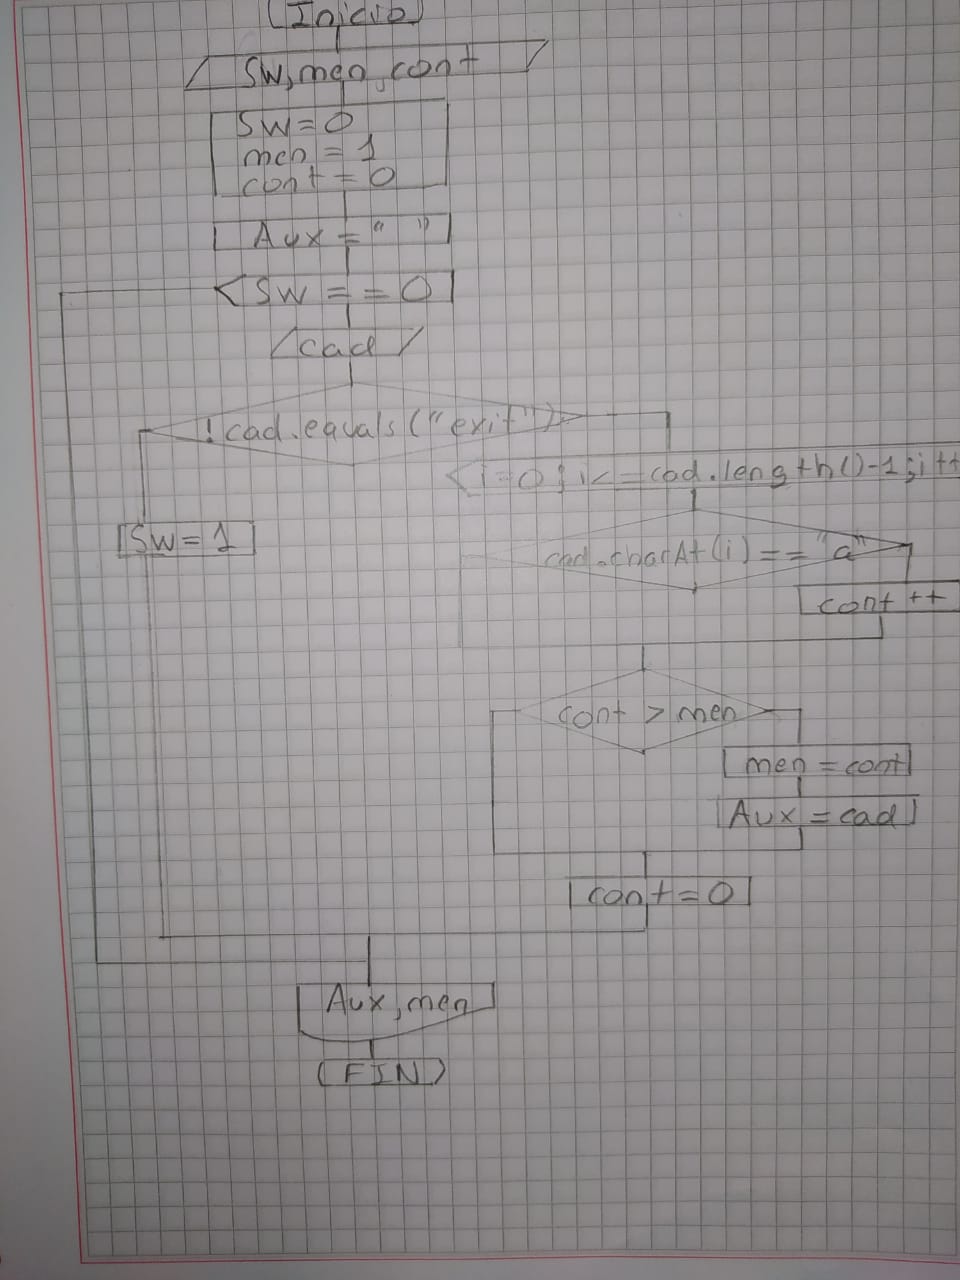 (Inicio)
SW, men, cont
SW = 0
men = 1
cont = 0
Aux = " "
SW == 0
cad
! cad.equals("exit")
i=0; i<=cad.length()-1; i++
SW = 1
cad.charAt(i) == "a"
cont ++
cont > men
men = cont
Aux = cad
cont = 0
Aux, men
(FIN)